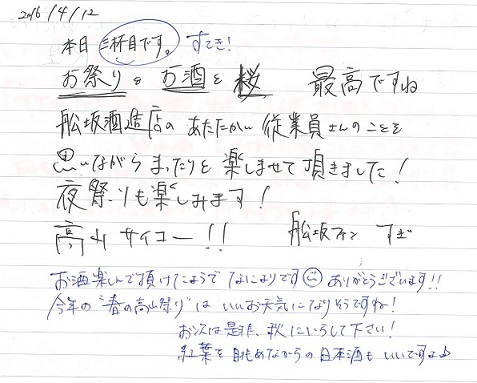 2016/4/12
本日 三杯目です。 すてき!
お祭りとお酒と桜 最高ですね
舩坂酒造店の あたたかい 従業員さんのことを
思いながら まったりと 楽しませて頂きました!
夜祭りも楽しみます!
高山 サイコー!! 舩坂ファン
お酒楽しんで頂けたようで なによりです ありがとうございます!!
今年の"春の高山祭り"は いいお天気になりそうですね!
お次は是非、秋にいらして下さい!
紅葉を眺めながらの日本酒もいいですよ♪